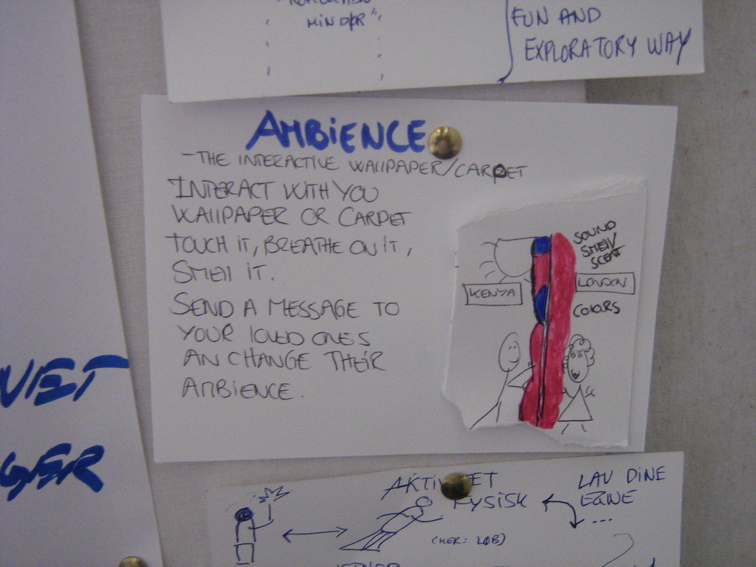 MIND/OR",
FUN AND
EXPLORATORY WAY
AMBiENCE
-THE INTERACTIVE WAllPAPER/CARPET
INTERACT WITH YOU
WAllPAPER OR CARPET
TOUCH IT, BREATHE ON IT,
SMEll IT.
SEND A MESSAGE TO
YOUR lOVED ONES
AN CHANGE THEIR
AMBIENCE.
SOUND
SMEll/
SCENT
KENYA
LONDON
COLORS
GER
FYSISK
LAV DINE
EGNE
...
(HER: LØB)